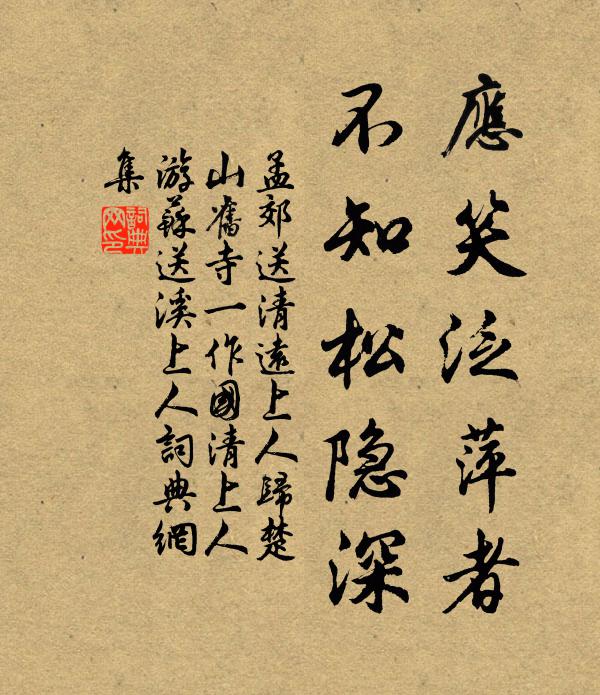 應笑泛萍者
不知松隐深
孟郊送清遠上人歸楚
山舊寺一作國清上人
游蘇送溪上人詞典網
集
詞典
网印